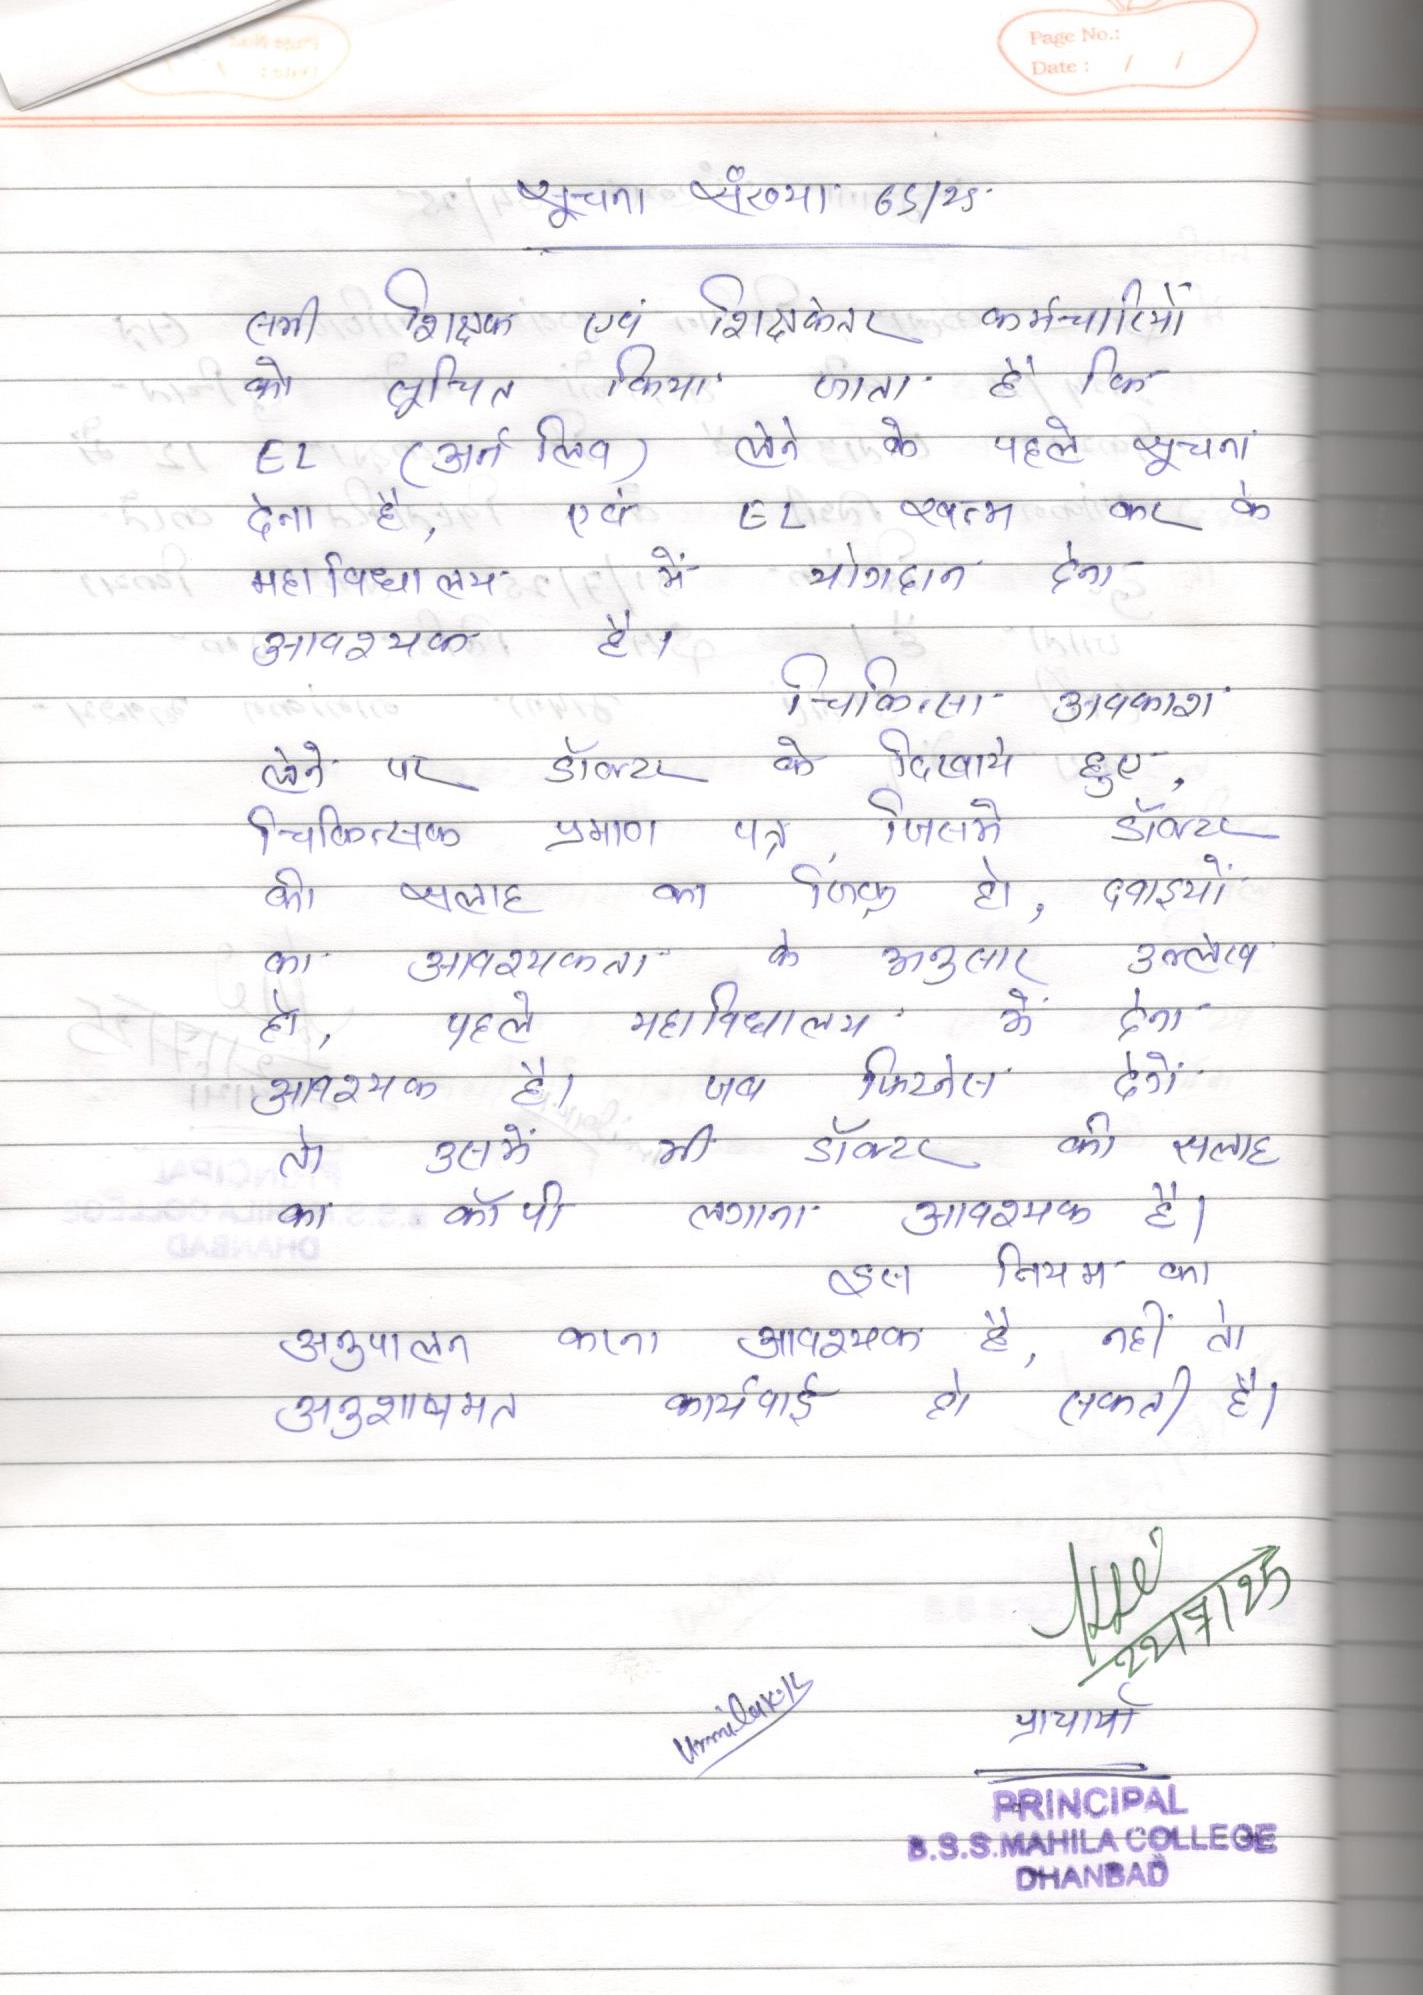 Page No.:
Date : / /
सूचना संख्या 65/25
सभी शिक्षक एवं शिक्षकेतर कर्मचारियों
को सूचित किया जाता है कि
EL (अर्न लिव) लेने के पहले सूचना
देना है, एवं EL खत्म कर के
महाविद्यालय में योगदान देना
आवश्यक है।
चिकित्सा अवकाश
लेने पर डॉक्टर के दिखाये हुए,
चिकित्सक प्रमाण पत्र, जिसमें डॉक्टर
की सलाह का जिक्र हो, दवाइयों
का आवश्यकता के अनुसार उल्लेख
हो, पहले महाविद्यालय में देना
आवश्यक है। जब फिटनेस देगें
तो उसमें भी डॉक्टर की सलाह
का कॉपी लगाना आवश्यक है।
इस नियम का
अनुपालन करना आवश्यक है, नहीं तो
कार्यवाई हो सकती है।
22/7/25
Urmila K.
प्राचार्या
PRINCIPAL
B.S.S.MAHILA COLLEGE
DHANBAD